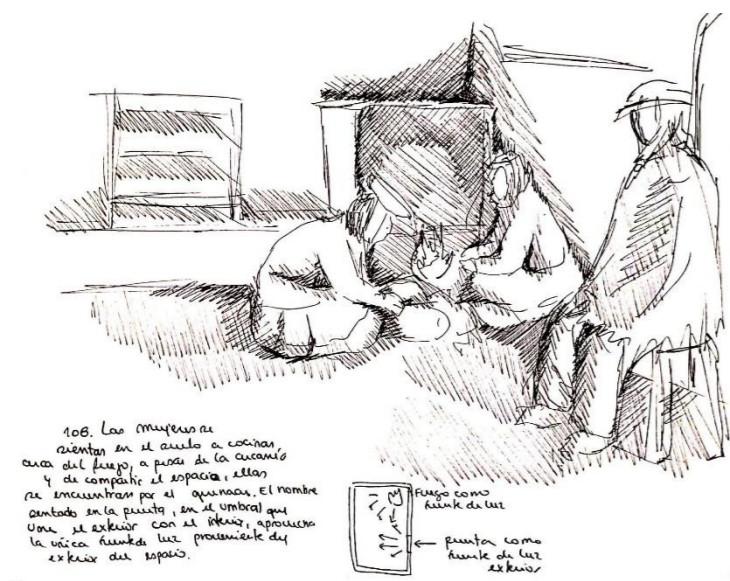 108. Las mujeres se
sientan en el suelo a cocinar,
cerca del fuego, a pesar de la cercanía
y de compartir el espacio, ellas
se encuentran por el quehacer. El hombre
sentado en la puerta, en el umbral que
une el exterior con el interior, aprovecha
la única fuente de luz proveniente del
exterior del espacio.
Fuego como
fuente de luz
puerta como
fuente de luz
exterior